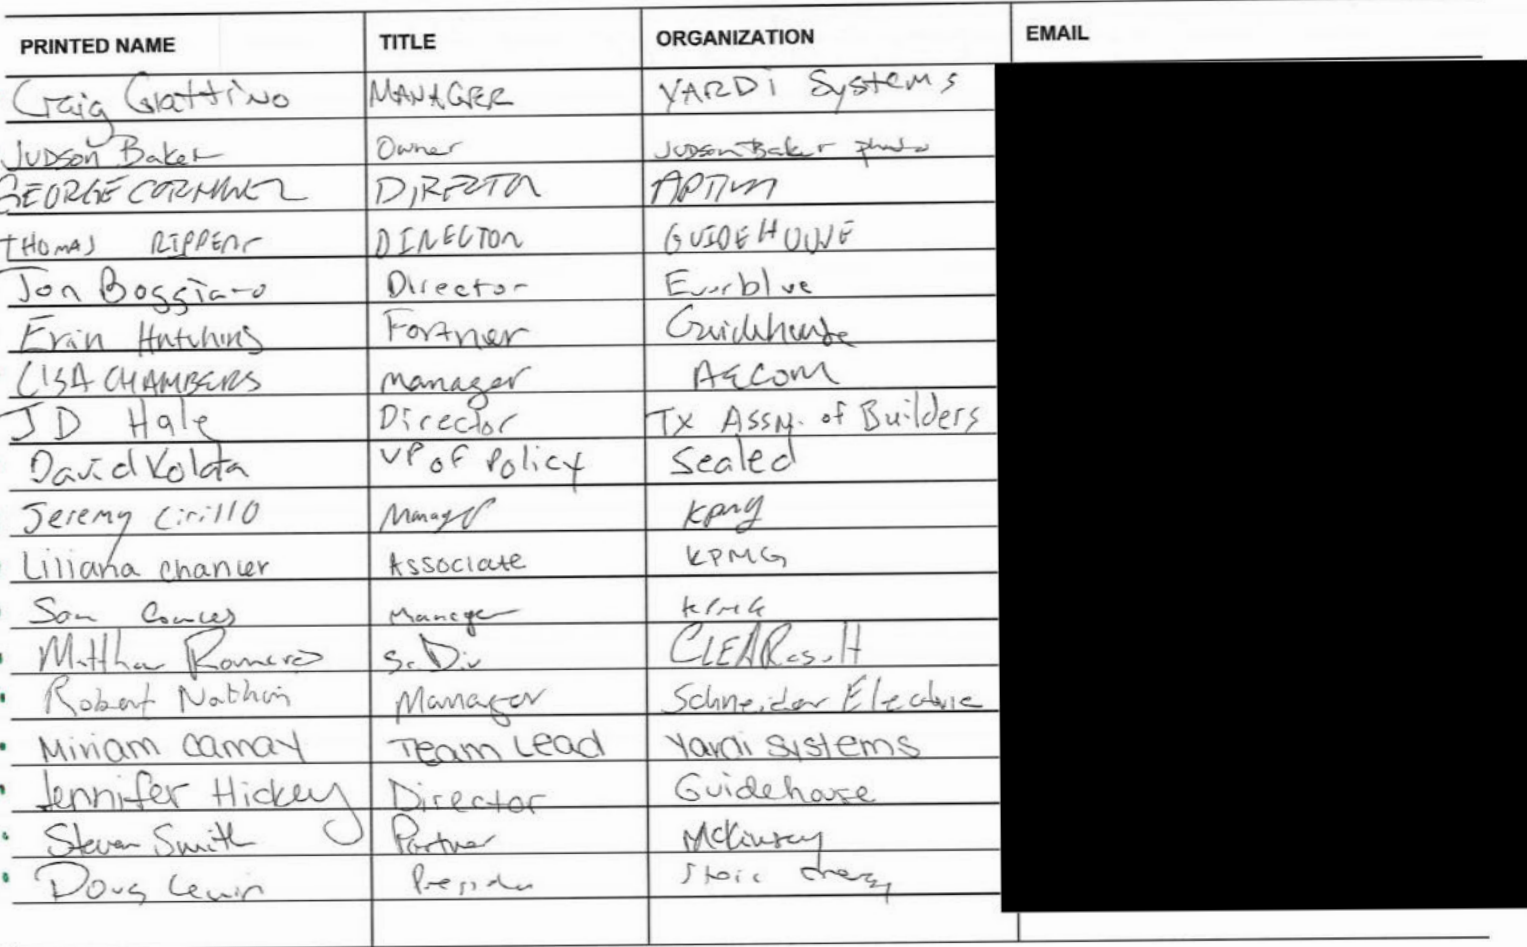 PRINTED NAME TITLE ORGANIZATION EMAIL
Craig Grattino MANAGER YARDI Systems
JUDSON Baker Owner JUDSON Baker photo
GEORGE DIRECTOR APTIM
THOMAS DIRECTOR GUIDEHOUSE
Jon Boggiano Director Everblue
Erin Hutchins Guidehouse
LISA CHAMBERS manager AECOM
JD Hale Director TX ASSN. of Builders
David Kolata VP of Policy Sealed
Jeremy Cirillo Manager KPMG
Liliana Associate KPMG
Sam Manager KPMG
Matthew Romero Sr. Dir CLEAResult
Robert Nathan Manager Schneider Electric
Miriam camay Team Lead Yardi systems
Jennifer Hickey Director Guidehouse
Steven Smith Partner McKinsey
Doug Lewin President Stoic Energy